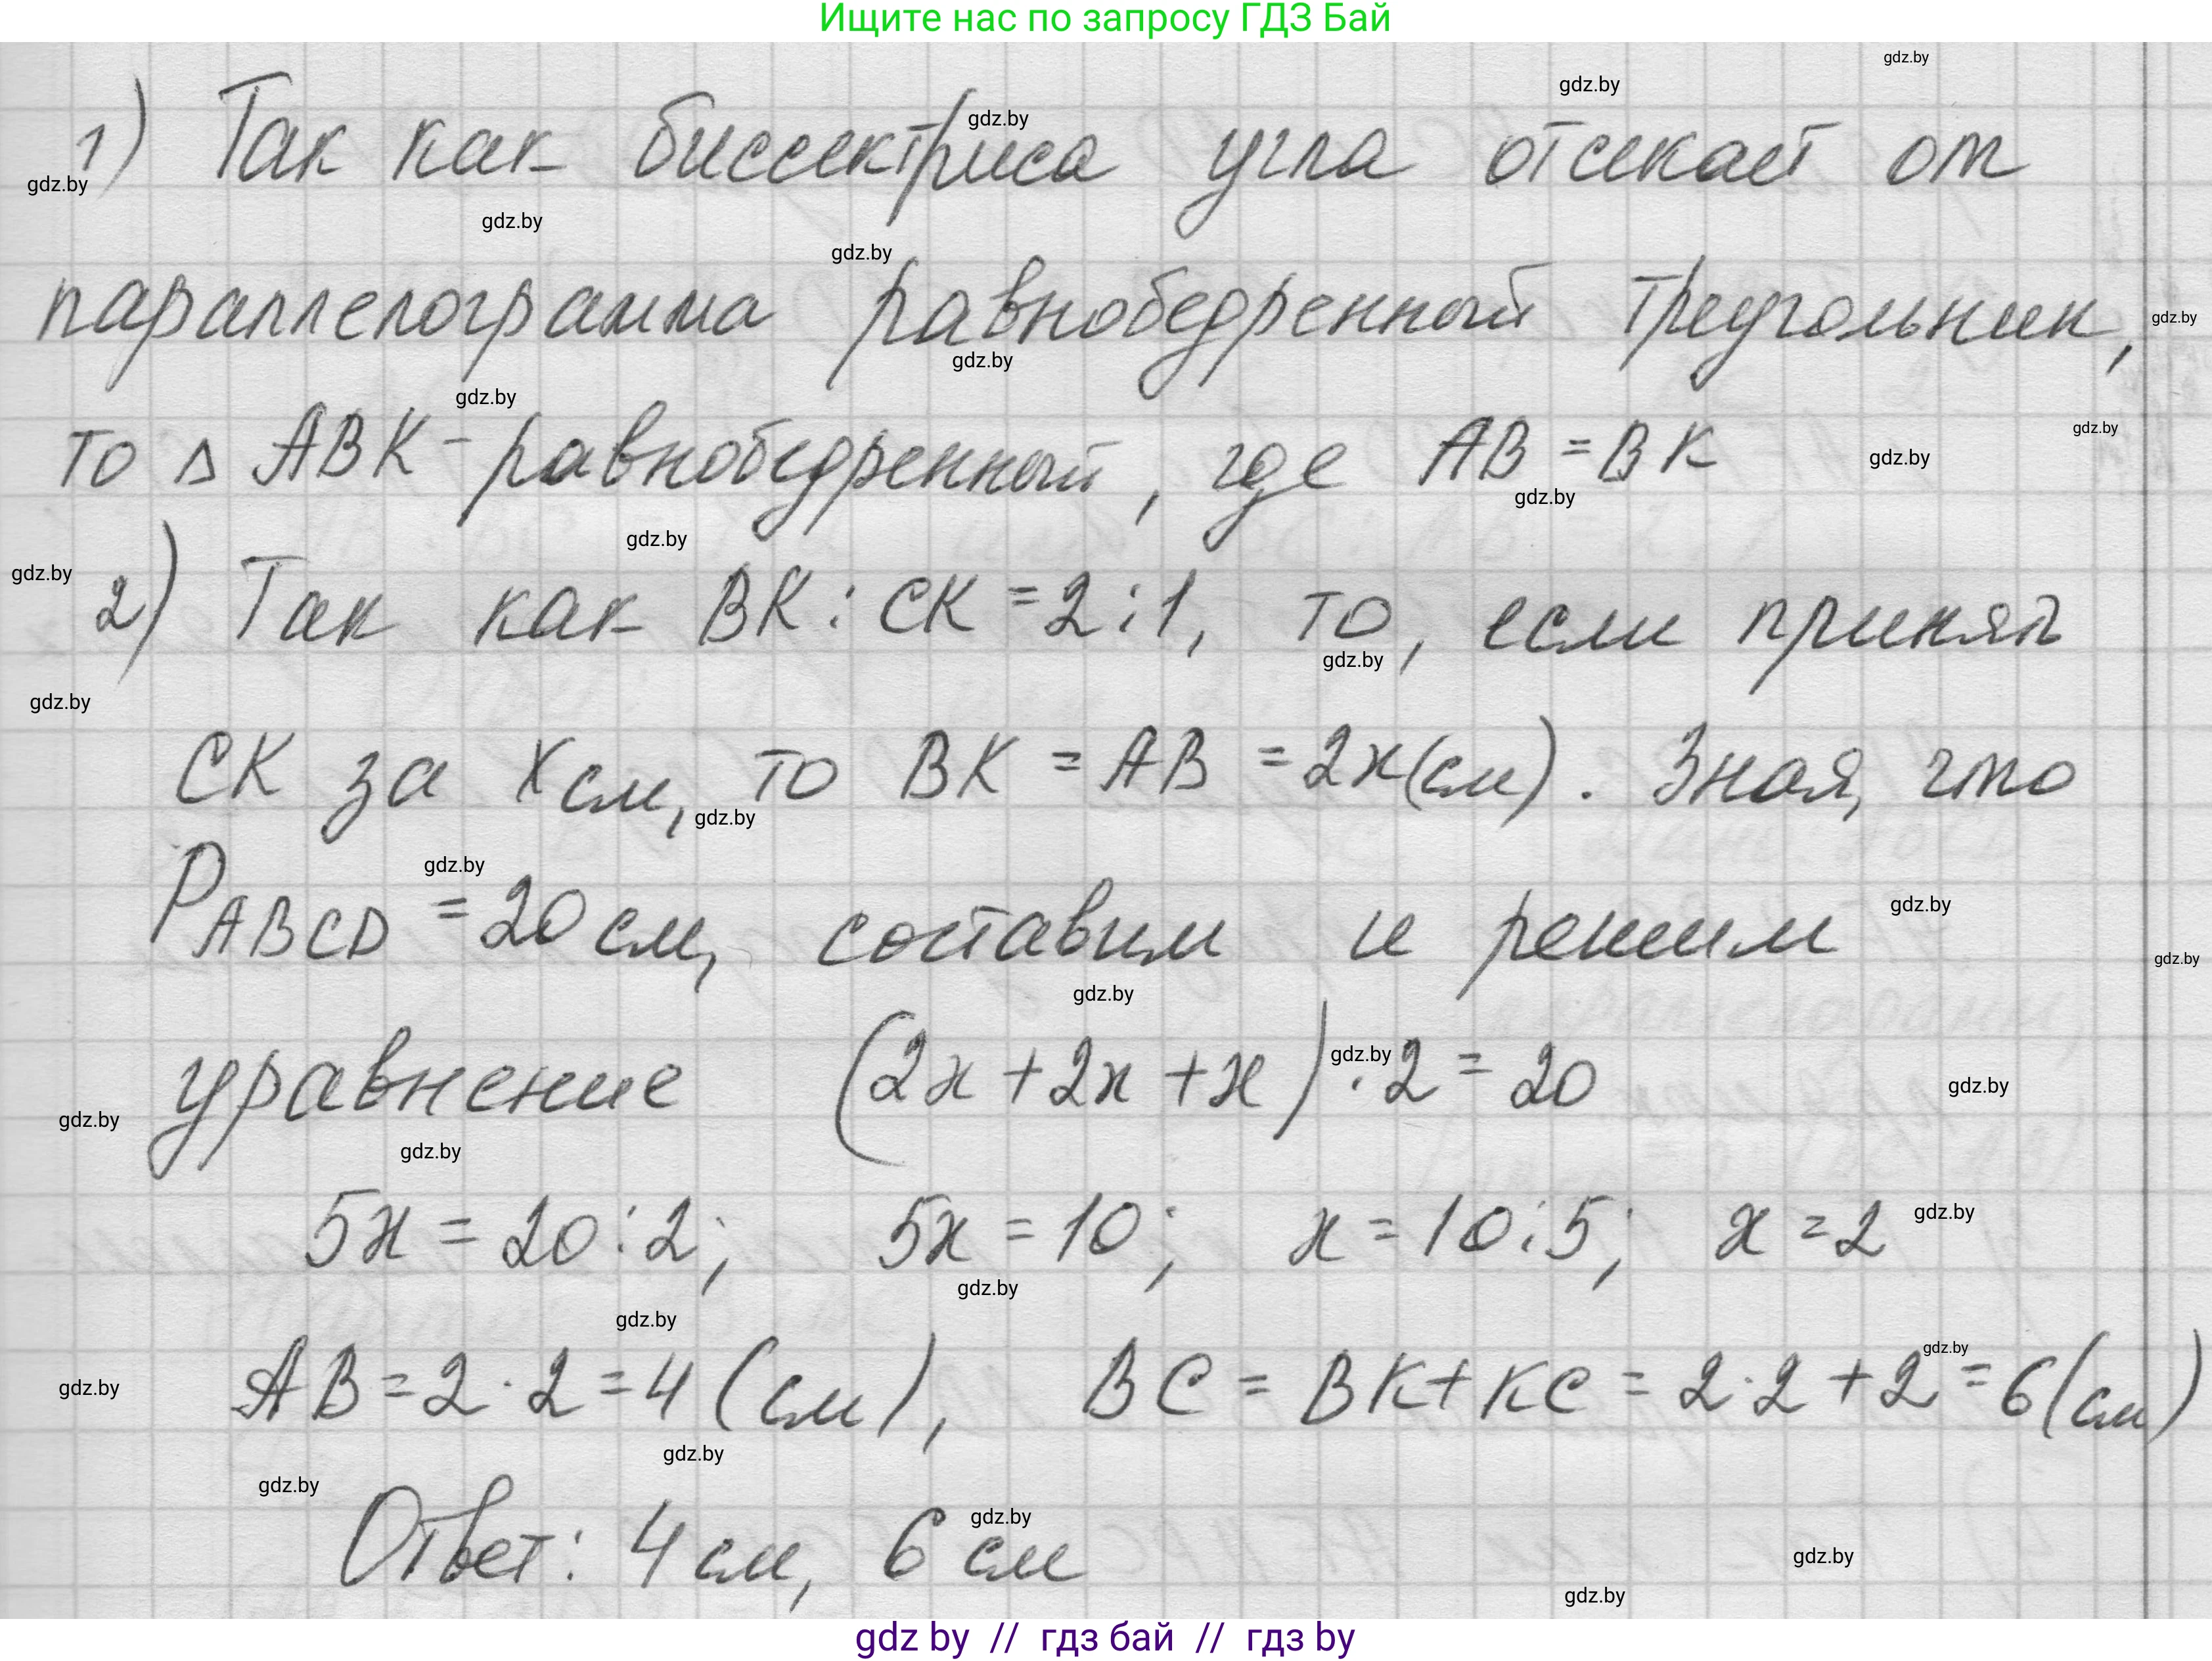 Ищите нас по запросу ГДЗ Бай
gdz.by
gdz.by
gdz.by
1) Так как биссектриса угла отсекает от
gdz.by
gdz.by
gdz.by
параллелограмма равнобедренный треугольник,
gdz.by
gdz.by
gdz.by
то Δ ABK - равнобедренный, где AB = BK
gdz.by
gdz.by
gdz.by
gdz.by
gdz.by
2) Так как BK : CK = 2 : 1, то, если принят
gdz.by
gdz.by
CK за x см, то BK = AB = 2x (см). Зная, что
gdz.by
gdz.by
PABCD = 20 см, составим и решим
gdz.by
gdz.by
gdz.by
уравнение (2x + 2x + x) · 2 = 20
gdz.by
gdz.by
gdz.by
gdz.by
5x = 20 : 2; 5x = 10; x = 10 : 5; x = 2
gdz.by
gdz.by
gdz.by
gdz.by
AB = 2 · 2 = 4 (см), BC = BK + KC = 2 · 2 + 2 = 6 (см)
gdz.by
gdz.by
gdz.by
gdz.by
Ответ: 4 см, 6 см
gdz.by
gdz.by
gdz by // гдз бай // гдз by